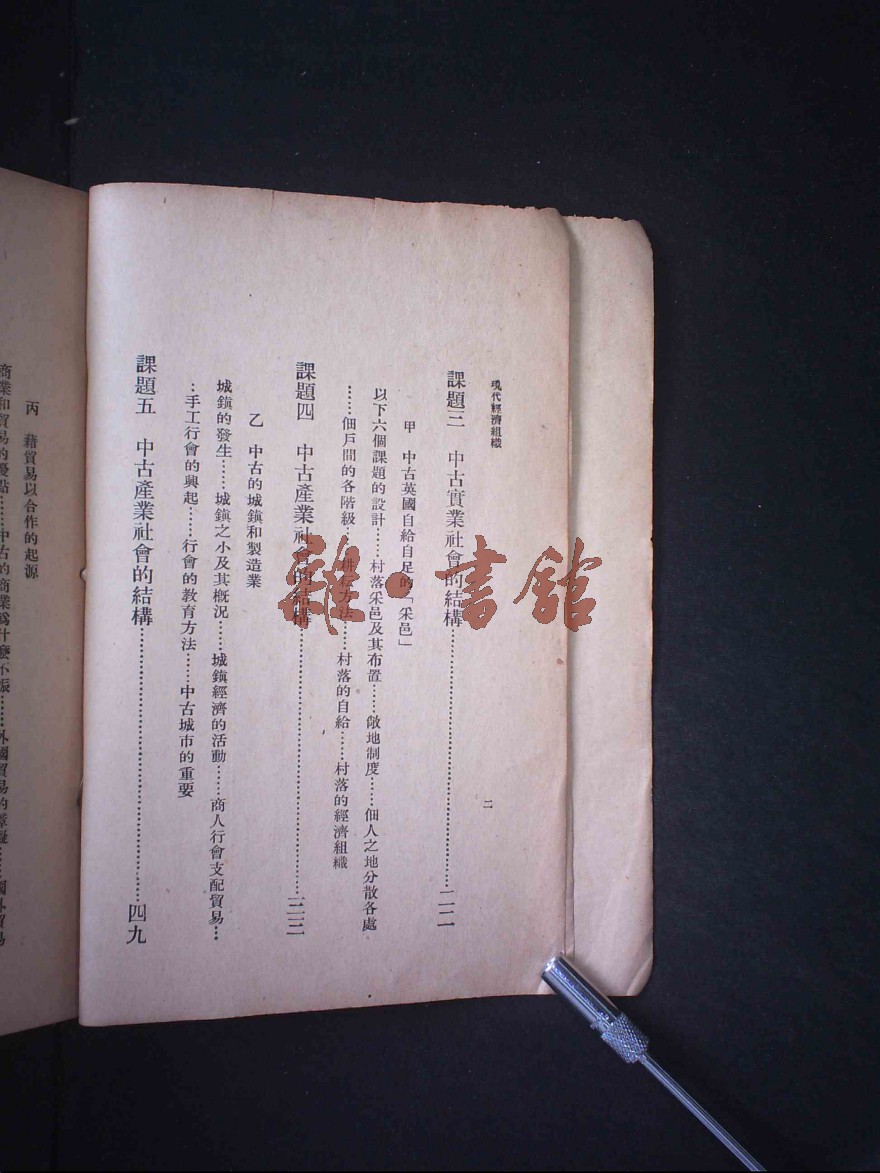 現代經濟組織
二
課題三　中古實業社會的結構……二二
甲　中古英國自給自足的「采邑」
以下六個課題的設計……村落采邑及其布置……敞地制度……佃人之地分散各處
……佃戶間的各階級……耕耘方法……村落的自給……村落的經濟組織
課題四　中古產業社會的結構……三三
乙　中古的城鎮和製造業
城鎮的發生……城鎮之小及其概況……城鎮經濟的活動……商人行會支配貿易…
…手工行會的興起……行會的教育方法……中古城市的重要
課題五　中古產業社會的結構……四九
丙　藉貿易以合作的起源
商業和貿易的優點……中古的商業爲什麼不振……外國貿易的障礙……國外貿易
雜·書館